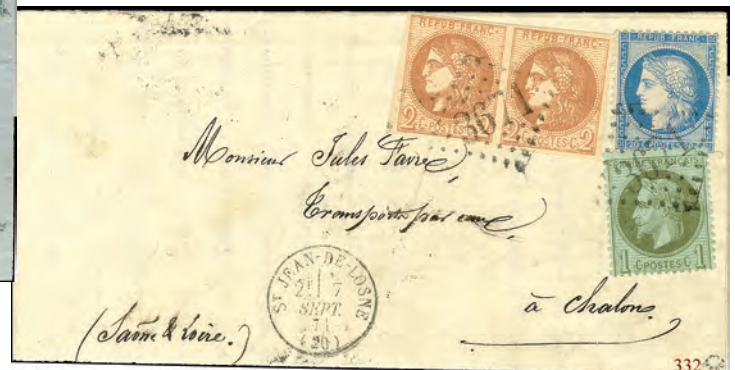 REPUB·FRANC·
REPUB·FRANC·
REPUB·FRANC·
2 C·POSTES·C· 2
2 C·POSTES·C· 2
3671
FRANÇAIS
1 C POSTES C 1
Monsieur Jules Favre,
Transports par eau,
à Chalon
(Saône & Loire.)
ST JEAN-DE-LOSNE
2E 7
SEPT.
71
(20)
332